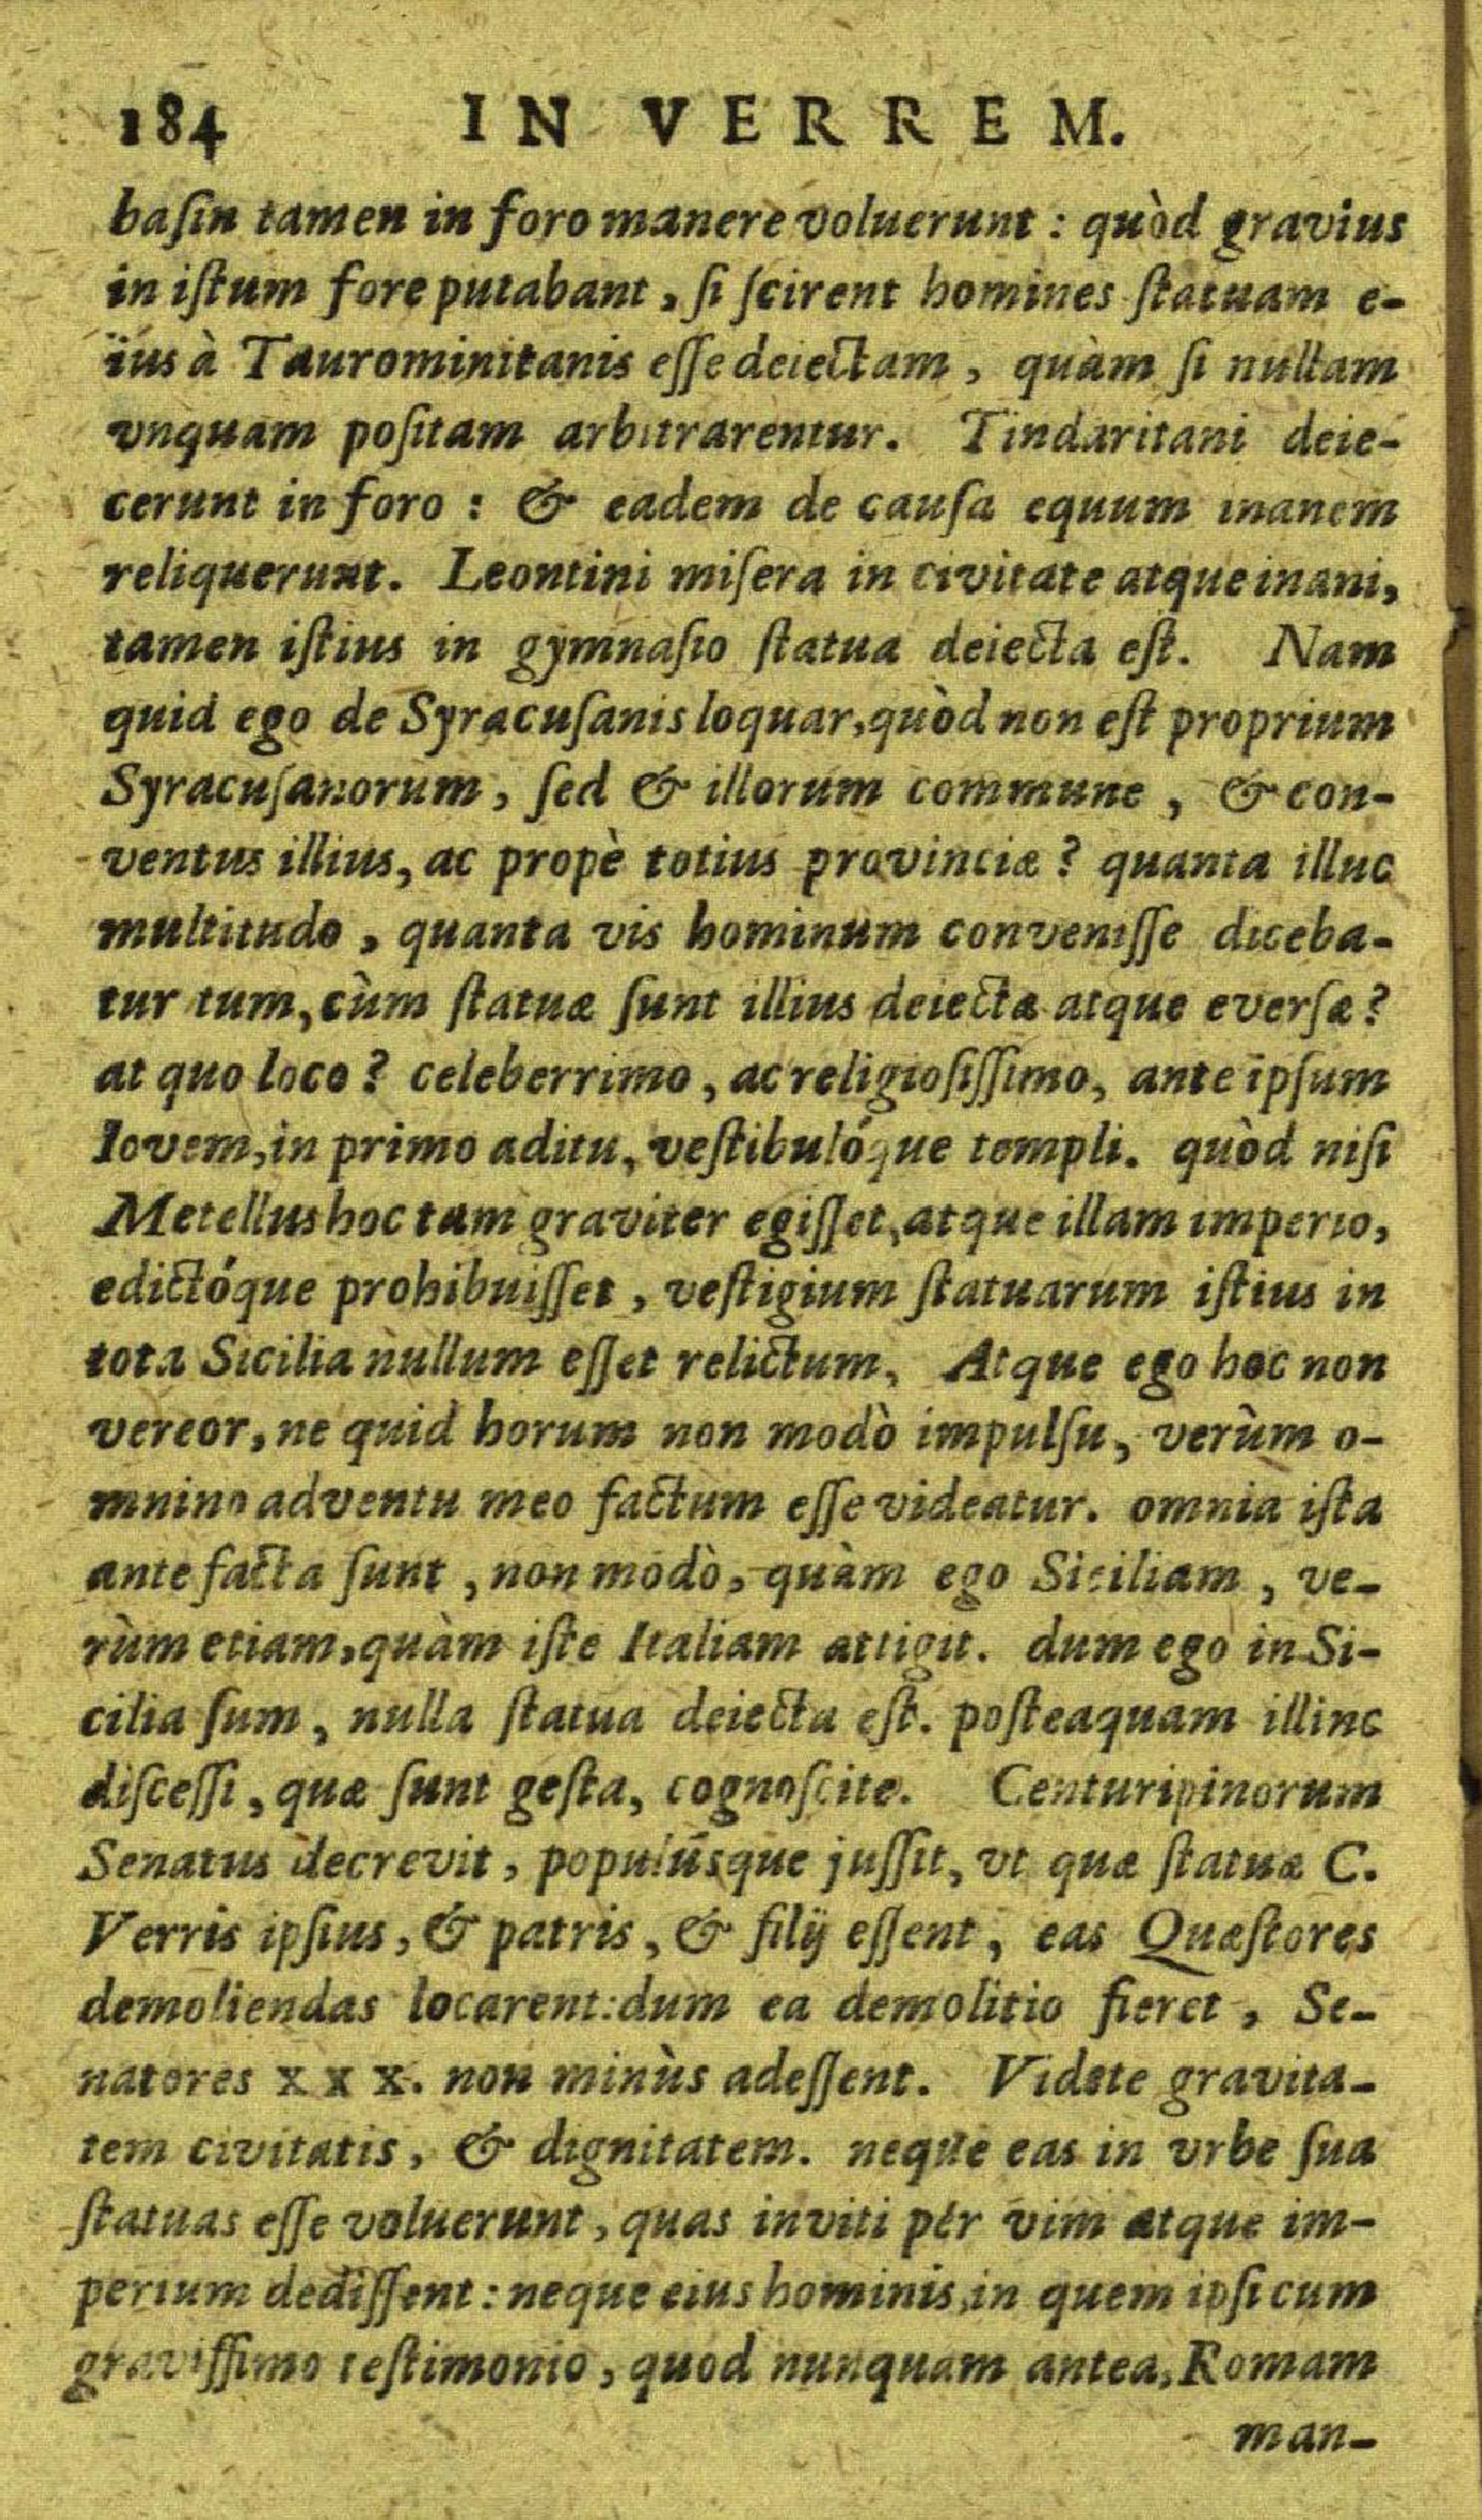 184 IN VERREM.
baſin tamen in foro manere voluerunt : quòd gravius
in iſtum fore putabant , ſi ſcirent homines ſtatuam e-
ius à Taurominitanis eſſe deiectam , quàm ſi nullam
vnquam poſitam arbitrarentur. Tindaritani deie-
cerunt in foro : & eadem de cauſa equum inanem
reliquerunt. Leontini miſera in civitate atque inani,
tamen iſtius in gymnaſio ſtatua deiecta eſt. Nam
quid ego de Syracuſanis loquar, quòd non eſt proprium
Syracuſanorum , ſed & illorum commune , & con-
ventus illius, ac propè totius provinciæ ? quanta illuc
multitudo , quanta vis hominum conveniſſe diceba-
tur tum, cùm ſtatuæ ſunt illius deiectæ atque everſæ ?
at quo loco ? celeberrimo , ac religioſiſſimo, ante ipſum
Iovem, in primo aditu, veſtibulóque templi. quòd niſi
Metellus hoc tam graviter egiſſet, atque illam imperio,
edictóque prohibuiſſet , veſtigium ſtatuarum iſtius in
tota Sicilia nullum eſſet relictum, Atque ego hoc non
vereor, ne quid horum non modò impulſu, verùm o-
mnino adventu meo factum eſſe videatur. omnia iſta
ante facta ſunt , non modò, quàm ego Siciliam , ve-
rùm etiam, quàm iſte Italiam attigit. dum ego in Si-
cilia ſum , nulla ſtatua deiecta eſt. poſteaquam illinc
diſceſſi , quæ ſunt geſta, cognoſcite. Centuripinorum
Senatus decrevit , populúsque juſſit, vt quæ ſtatuæ C.
Verris ipſius, & patris , & filij eſſent , eas Quæſtores
demoliendas locarent: dum ea demolitio fieret , Se-
natores XXX. non minùs adeſſent. Videte gravita-
tem civitatis, & dignitatem. neque eas in vrbe ſua
ſtatuas eſſe voluerunt , quas inviti per vim atque im-
perium dediſſent : neque eius hominis, in quem ipſi cum
graviſſimo teſtimonio , quod nunquam antea, Romam
man-